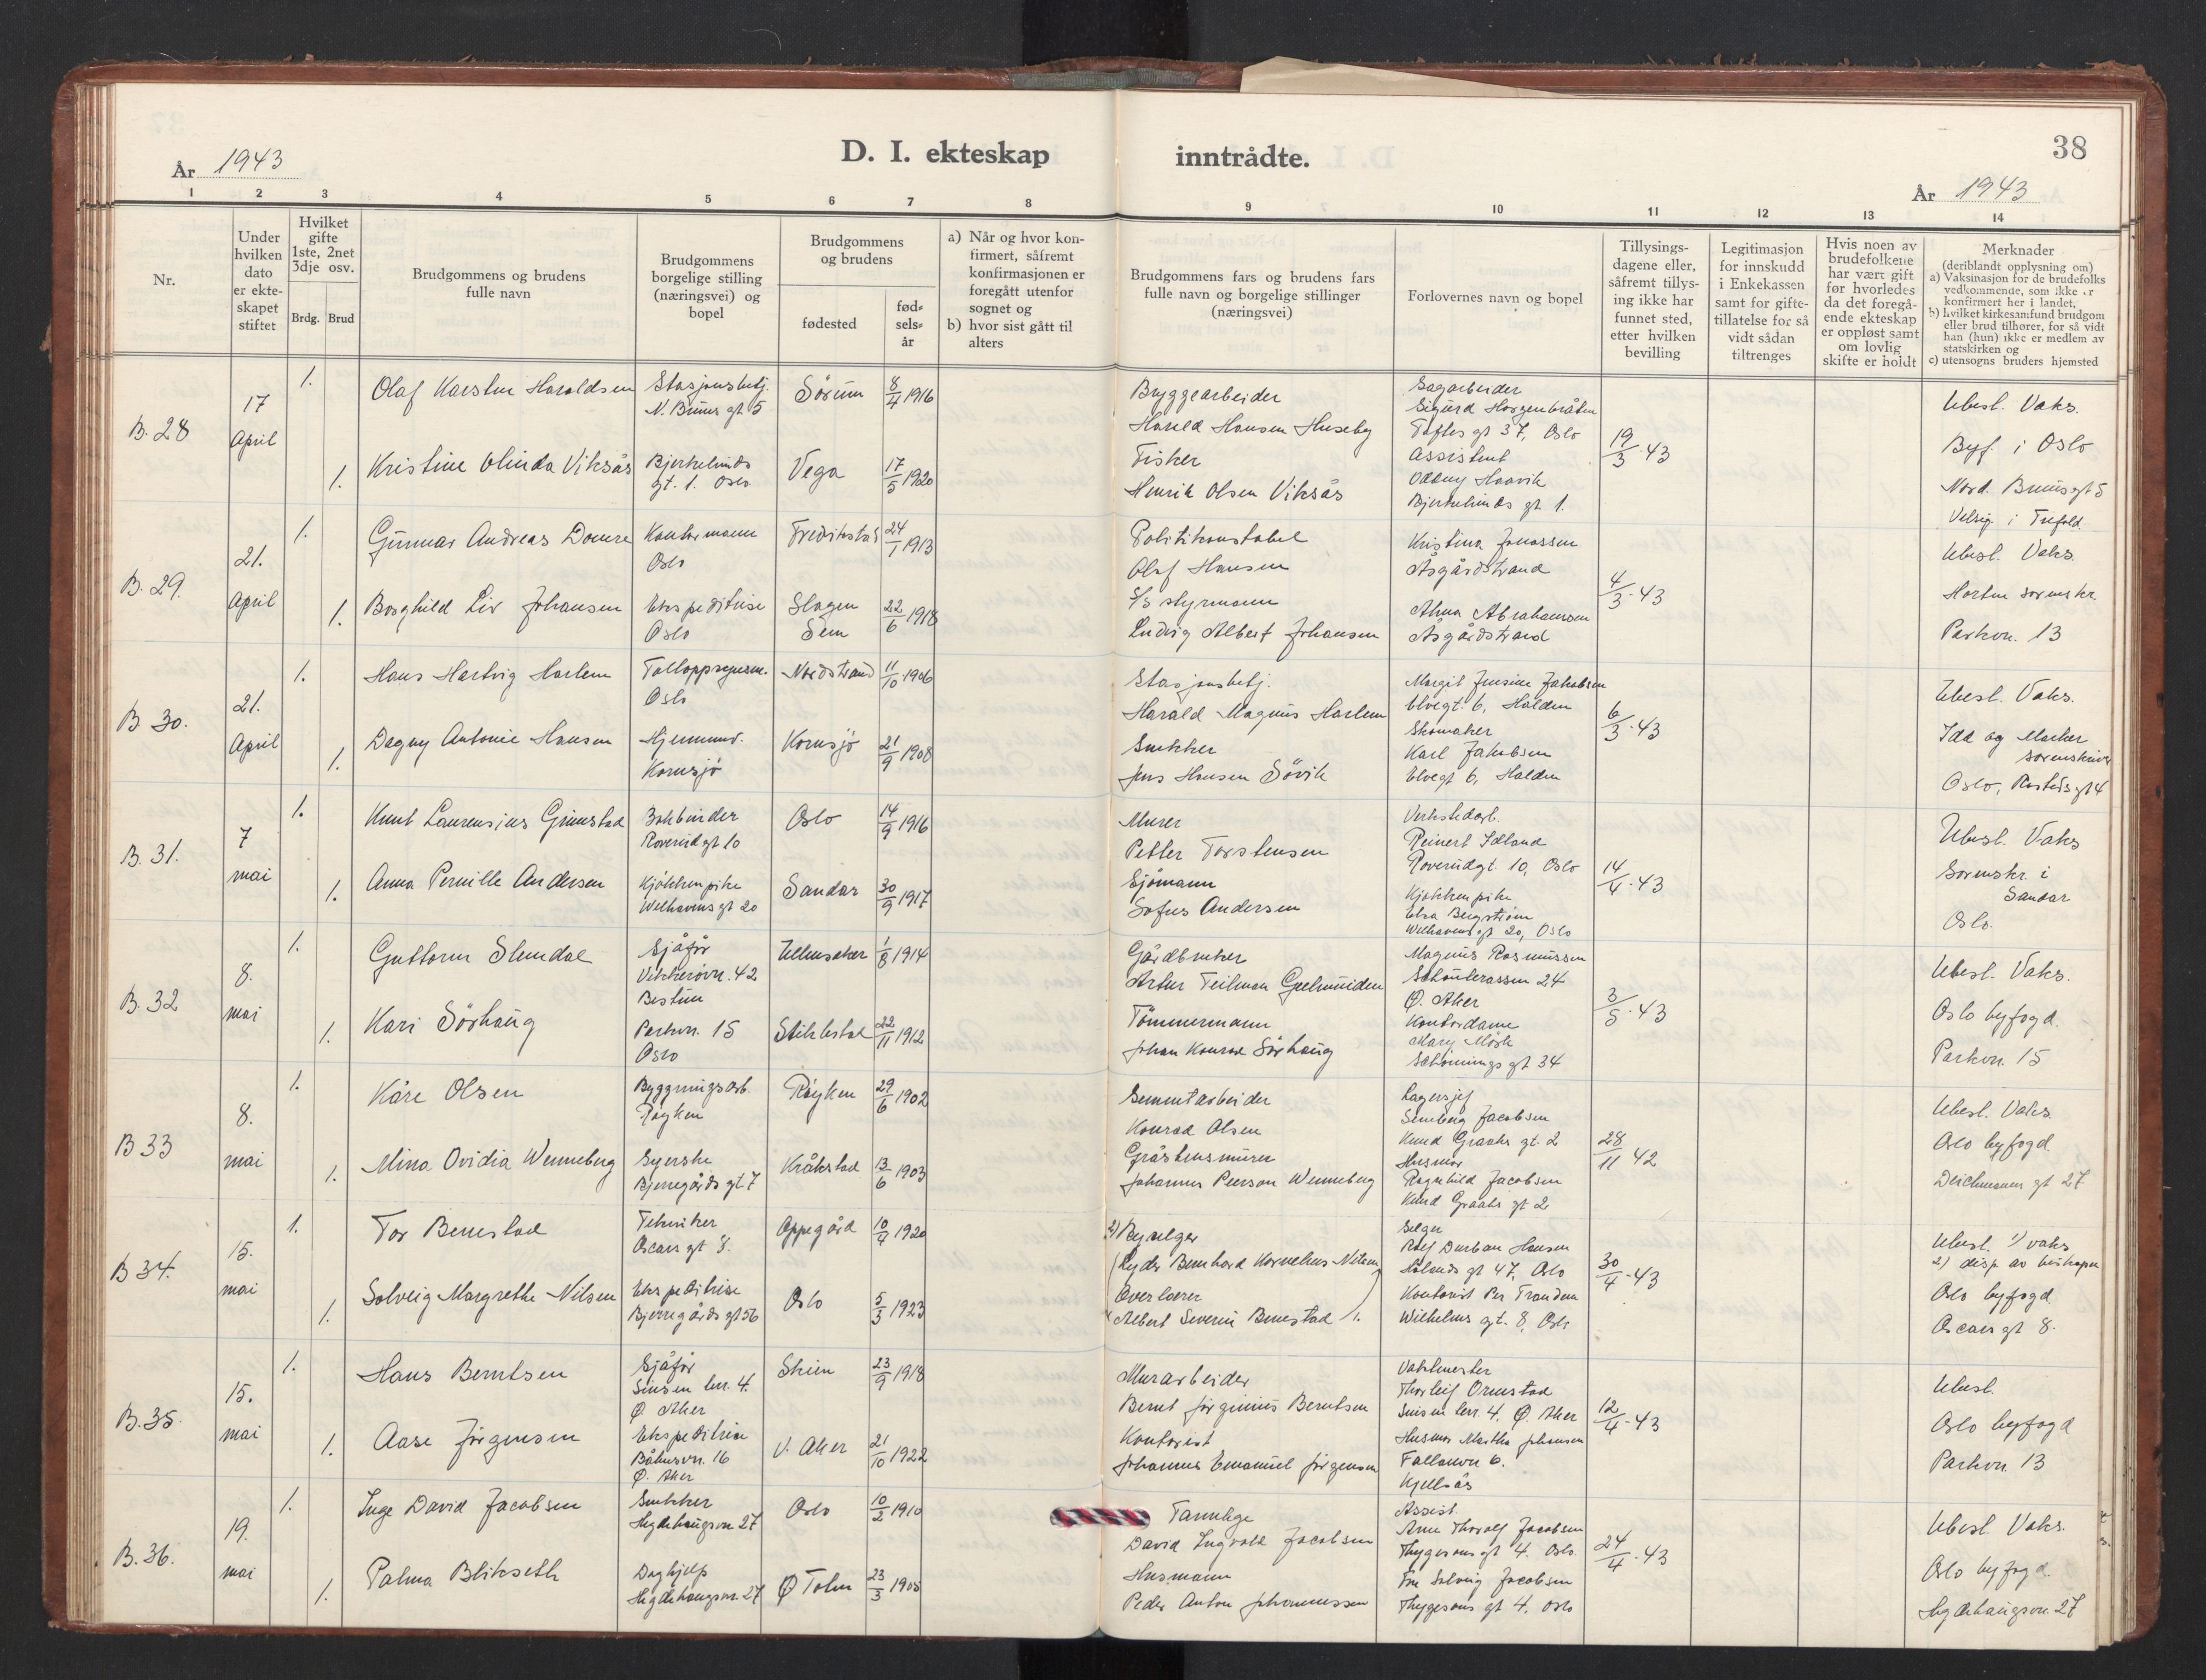 År 1943
D. I. ekteskap
inntrådte.
38
År 1943
1 2 3 4 5 6 7 8 9 10 11 12 13 14
Nr.
Under
hvilken
dato
er ekte-
skapet
stiftet
Hvilket
gifte
1ste, 2net
3dje osv.
Brdg. Brud
Brudgommens og brudens
fulle navn
Brudgommens
borgelige stilling
(næringsvei) og
bopel
Brudgommens
og brudens
fødested
fød-
sels-
år
a) Når og hvor kon-
firmert, såfremt
konfirmasjonen er
foregått utenfor
sognet og
b) hvor sist gått til
alters
Brudgommens fars og brudens fars
fulle navn og borgelige stillinger
(næringsvei)
Forlovernes navn og bopel
Tillysings-
dagene eller,
såfremt tillys-
ing ikke har
funnet sted,
etter hvilken
bevilling
Legitimasjon
for innskudd
i Enkekassen
samt for gifte-
tillatelse for så
vidt sådan
tiltrenges
Hvis noen av
brudefolkene
har vært gift
før hvorledes
da det foregå-
ende ekteskap
er oppløst samt
om lovlig
skifte er holdt
Merknader
(deriblandt opplysning om)
a) Vaksinasjon for de brudefolks
vedkommende, som ikke er
konfirmert her i landet,
b) hvilket kirkesamfund brudgom
eller brud tilhører, for så vidt
han (hun) ikke er medlem av
statskirken og
c) utensogns bruders hjemsted
B. 28
17
April
1.
Olaf Karsten Haraldsen
Stasjonsbetj.
N. Bruns gt 5
Sörum
8/4 1916
1.
Kristine Olinda Viksås
Bjerkelunds
gt. 1. Oslo
Vega
17/5 1920
Bryggearbeider
Harald Hansen Huseby
Fisker
Henrik Olsen Viksås
Sagarbeider
Sigurd Horgenbråten
Toftes gt 37, Oslo
Assistent
Oddny Haavik
Bjerkelunds gt 1.
19/3-43
Ubesl. Vaks.
Byf. i Oslo
Nord. Bruns gt 5
Velsig. i Trefold.
B. 29.
21.
April
1.
Gunnar Andreas Domre
Kontormann
Oslo
Fredrikstad
24/1 1913
1.
Borghild Liv Johansen
Ekspeditrise
Oslo
Slagen
Sem
22/6 1918
Politikonstabel
Olaf Hansen
S/S styrmann
Ludvig Albert Johansen
Kristina Jonassen
Åsgårdstrand
Alma Abrahamsen
Åsgårdstrand
4/3-43
Ubesl. Vaks.
Horten sorenskr.
Parkvn. 13
B 30.
21.
April
1.
Hans Hartvig Harlem
Tolloppsynsm.
Oslo
Nordstrand
11/10 1906
1.
Dagny Antonie Hansen
Hjemmev.
Kornsjö
Kornsjö
21/9 1908
Stasjonsbetj.
Harald Magnus Harlem
Snekker
Jens Hansen Sövik
Margit Jensine Jakobsen
Elvegt. 6, Halden
Skomaker
Karl Jakobsen
Elvegt 6, Halden
6/3-43
Ubesl. Vaks.
Idd og Marker
sorenskriver
Oslo, Rosteds gt 4
B. 31.
7
mai
1.
Knut Laurensius Grimstad
Bokbinder
Roverudgt 10
Oslo
14/9 1916
1.
Anna Pernille Andersen
Kjökkenpike
Welhavensgt 20
Sandar
30/9 1917
Murer
Petter Torstensen
Sjömann
Sofus Andersen
Verkstedarb.
Reinert Idland
Roverudgt. 10, Oslo
Kjökkenpike
Elsa Bergström
Welhavensgt 20, Oslo
14/4-43
Ubesl. Vaks
Sorenskr. i
Sandar
Oslo.
B. 32
8.
mai
1.
Guttorm Slemdal
Sjåför
Vekkerövn. 42
Bestum
Ullensaker
1/8 1914
1.
Kari Sörhaug
Parkvn. 15
Oslo
Stiklestad
22/11 1912
Gårdbruker
Artur Teilman
Tömmermann
Johan Konrad Sörhaug
Magnus Rasmussen
24
Ø. Aker
Kontordame
Mary Mörk
Schönings gt 34
3/5-43
Ubesl. Vaks.
Oslo byfogd.
Parkvn. 15
B 33
8.
mai
1.
Kåre Olsen
Bygningsarb.
Röyken
Röyken
29/6 1902
1.
Mina Ovidia Wenneberg
Syerske
Bjerregårds gt 7
Kråkstad
13/6 1903
Sementarbeider
Konrad Olsen
Gråstensmurer
Johannes Peerson Wenneberg
Lagersjef
Semberg Jacobsen
Knud Graahs gt. 2
Husmor
Ragnhild Jacobsen
Knud Graahs gt 2
28/11 42
Ubesl. Vaks
Oslo byfogd
Deichmanns gt 27
B 34.
15.
mai
1.
Tor Benestad
Tekniker
Oscars gt 8.
Oppegård
10/4 1920
1.
Solveig Margrethe Nilsen
Ekspeditrise
Bjerregårds gt 56
Oslo
5/3 1923
2) Byselger
(Lyder Bernhard Kornelius Nilsen
Overlærer
Albert Severin Benestad 1.
Selger
Rolf Durban Hansen
Hölands gt 47, Oslo
Kontorist Per Trondsen
Wilhelms gt. 8, Oslo
30/4-43
Ubesl. 1) vaks
2) disp. av biskopen
Oslo byfogd
Oscars gt 8.
B. 35
15.
mai
1.
Hans Berntsen
Sjåför
Sinsen terr. 4.
Ø. Aker
Skien
23/9 1918
1.
Aase Jörgensen
Ekspeditrise
Båhusvn. 16
Ø. Aker
V. Aker
21/10 1922
Murarbeider
Bernt Jörginius Berntsen
Kontorist
Johannes Emanuel Jörgensen
Vaktmester
Thorleif Ormstad
Sinsen terr. 4, Ø. Aker
Husmor Martha Johansen
6.
Kjelsås
12/4-43
Ubesl.
Oslo byfogd
Parkvn. 13
B. 36.
19.
mai
1.
Inge David Jacobsen
Snekker
Hegdehaugsvn 27
Oslo
10/2 1910
1.
Palma Blikseth
Daghjelp
Hegdehaugsvn. 27
Ø Toten
23/3 1905
Tannlege
David Ingvald Jacobsen
Husmann
Peder Anton Johannessen
Assist.
Arne Thoralf Jacobsen
Thygesons gt 4. Oslo
Fru Solveig Jacobsen
Thygesons gt 4. Oslo
24/4-43
Ubesl. Vaks.
Oslo byfogd.
Hegdehaugsvn. 27